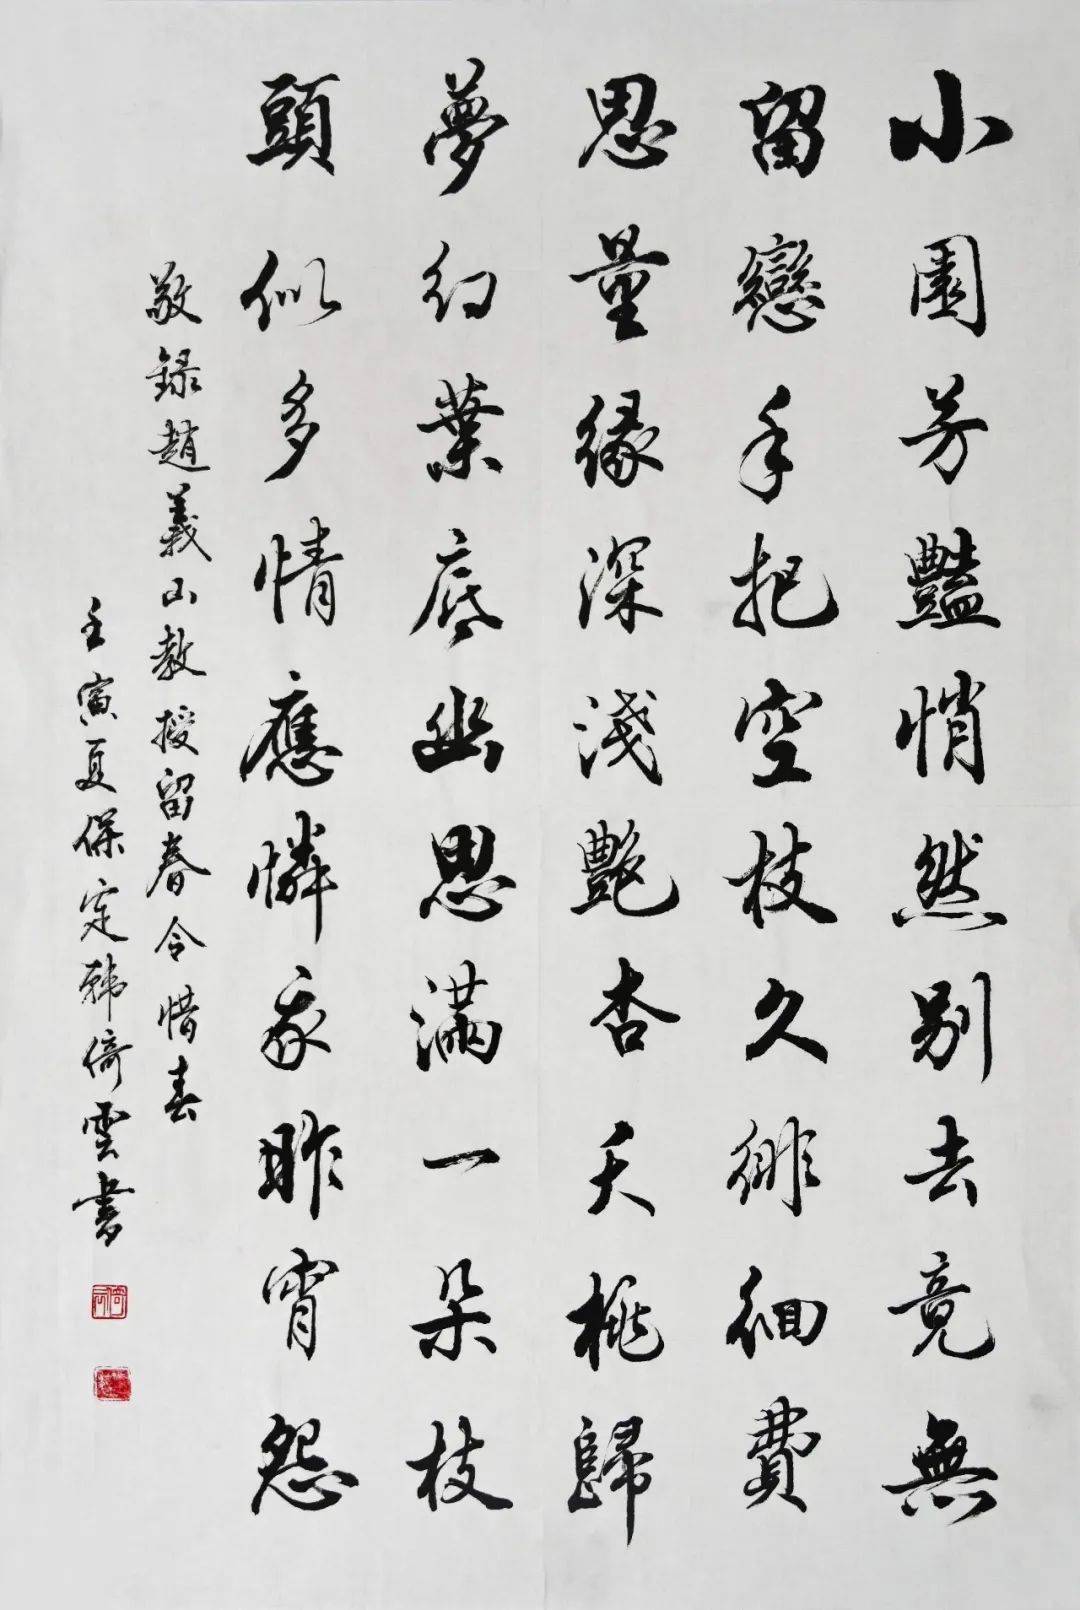 小園芳豔悄然別去竟無
留戀手把空枝久徘徊費
思量緣深淺艷杏夭桃歸
夢幻葉底幽思滿一朵枝
頭似多情應憐我昨宵怨
敬録趙義山教授留春令惜春
壬寅夏保定韩倚雲書